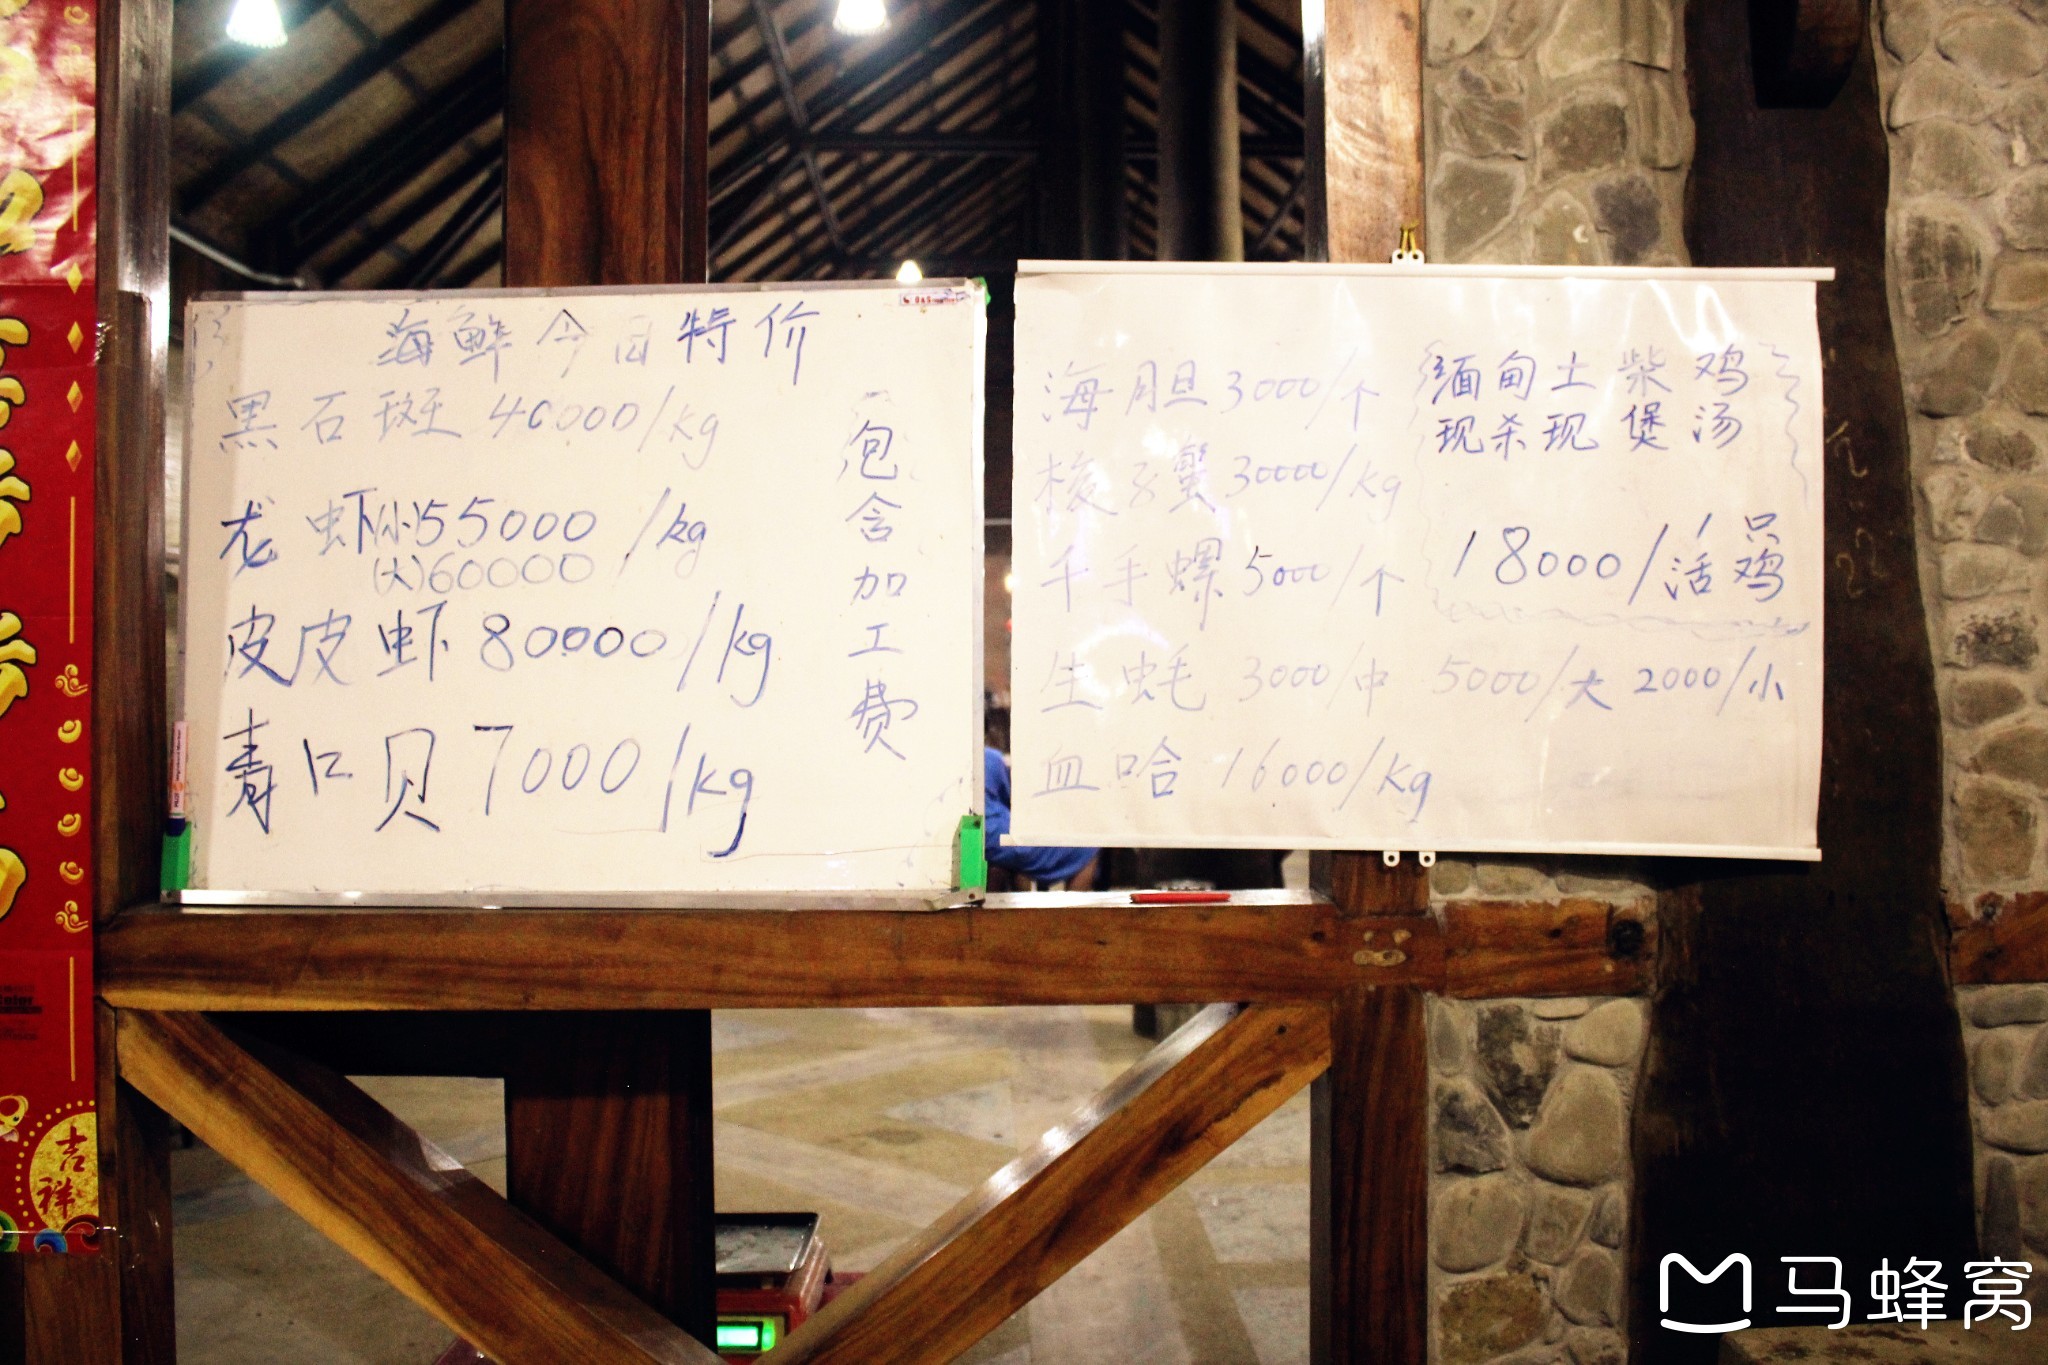 海鲜今日特价
黑石斑 40000/kg
龙虾(小)55000/kg
(大)60000
皮皮虾 80000/kg
青口贝 7000/kg
包含加工费
海胆 3000/个
梭子蟹 30000/kg
千手螺 5000/个
生蚝 3000/中 5000/大 2000/小
血哈 16000/kg
缅甸土柴鸡
现杀现煲汤
18000/1只
活鸡
吉祥
马蜂窝